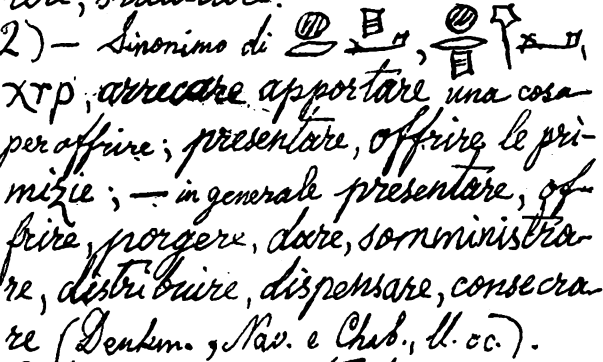 2) — Sinonimo di , ,
χrp, arrecare apportare una cosa
per offrire; presentare, offrire le pri-
mizie; — in generale presentare, of-
frire, porgere, dare, somministra-
re, distribuire, dispensare, consecra-
re (Denkm., Nav. e Chab., ll. cc.).